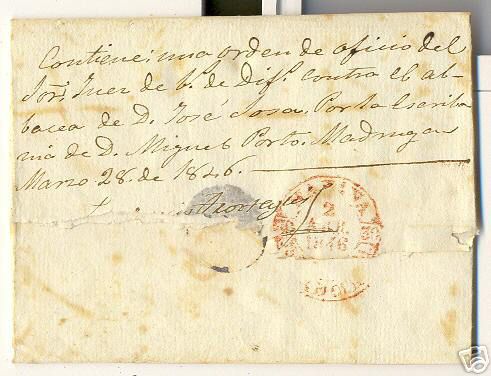 Contiene: una orden de oficio del
Sor. Juez de bs. de Difs. contra el al-
bacea de D. José Sosa. Por la Escriba
nia de D. Miguel Porto. Madruga
Marzo 28. de 1846.
2
ABR.
1846
ebay